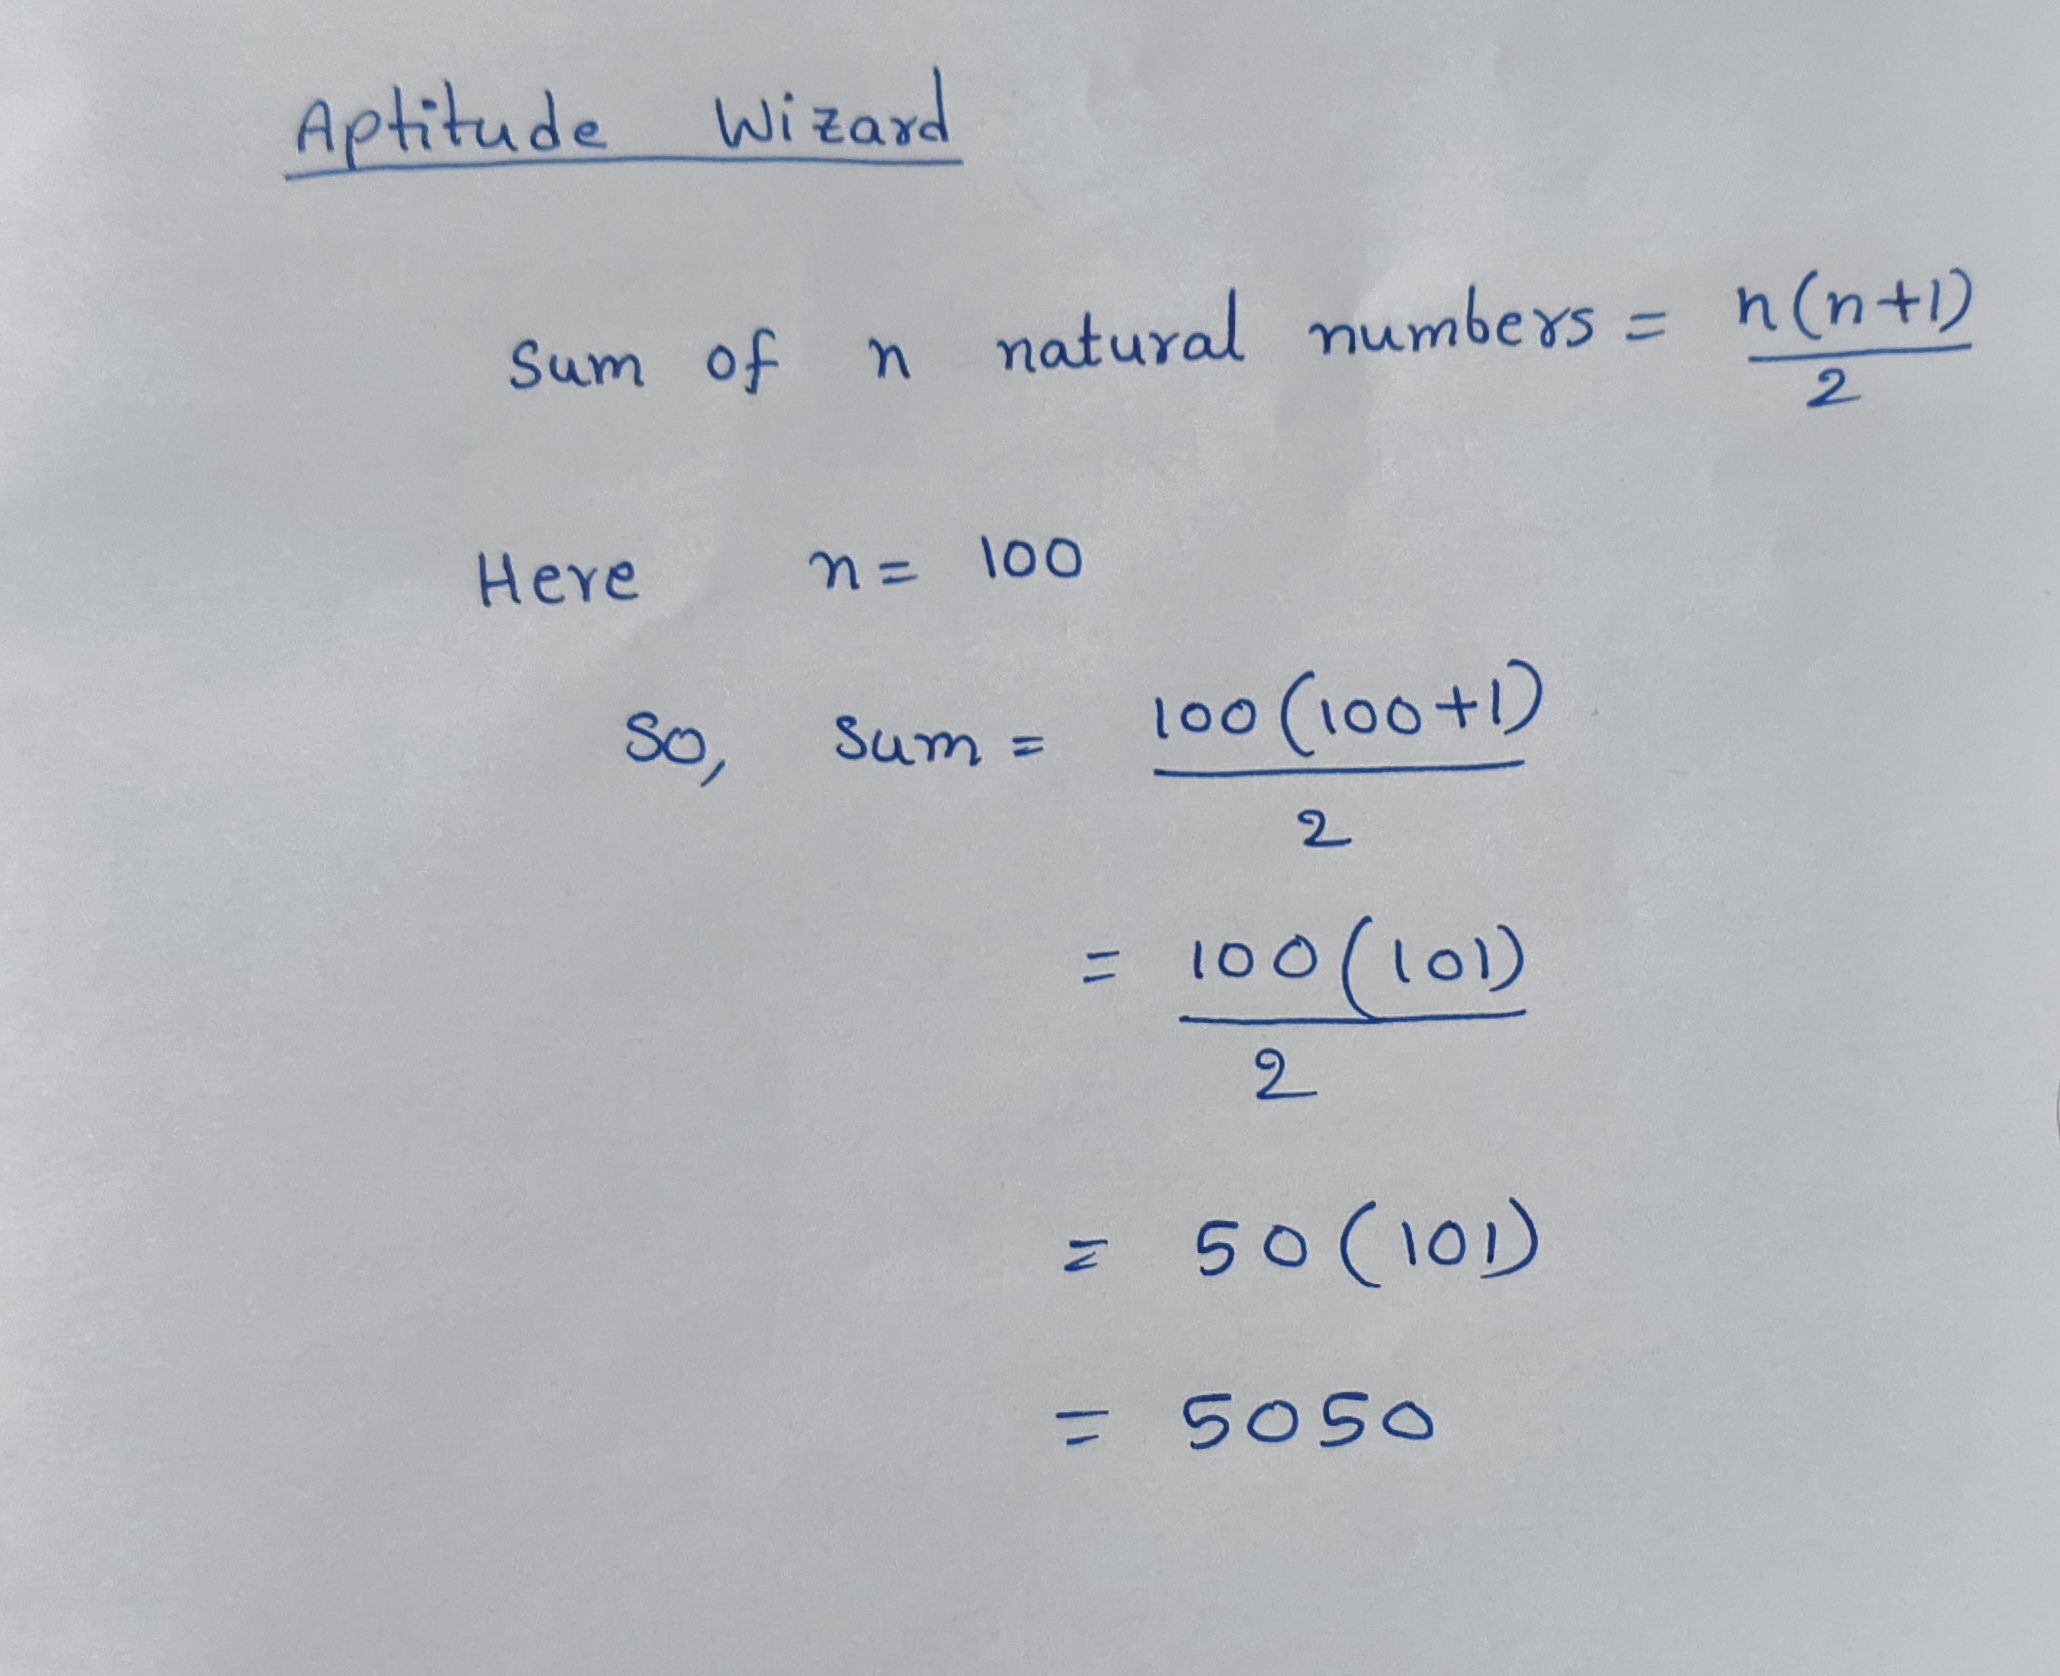 Aptitude Wizard
Sum of n natural numbers = n(n+1)/2
Here n = 100
So, Sum = 100(100+1)/2
= 100(101)/2
= 50(101)
= 5050